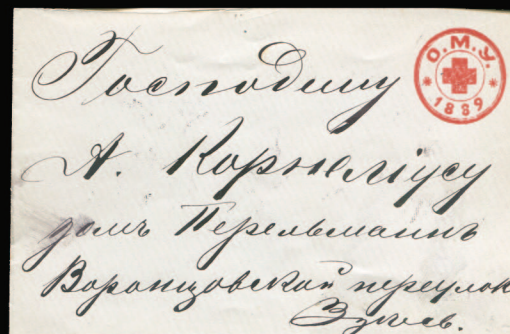 О.М.У.
1889
Господину
А. Корнеліусу
домъ Перельманъ
Воронцовской переулок
Здѣсь.